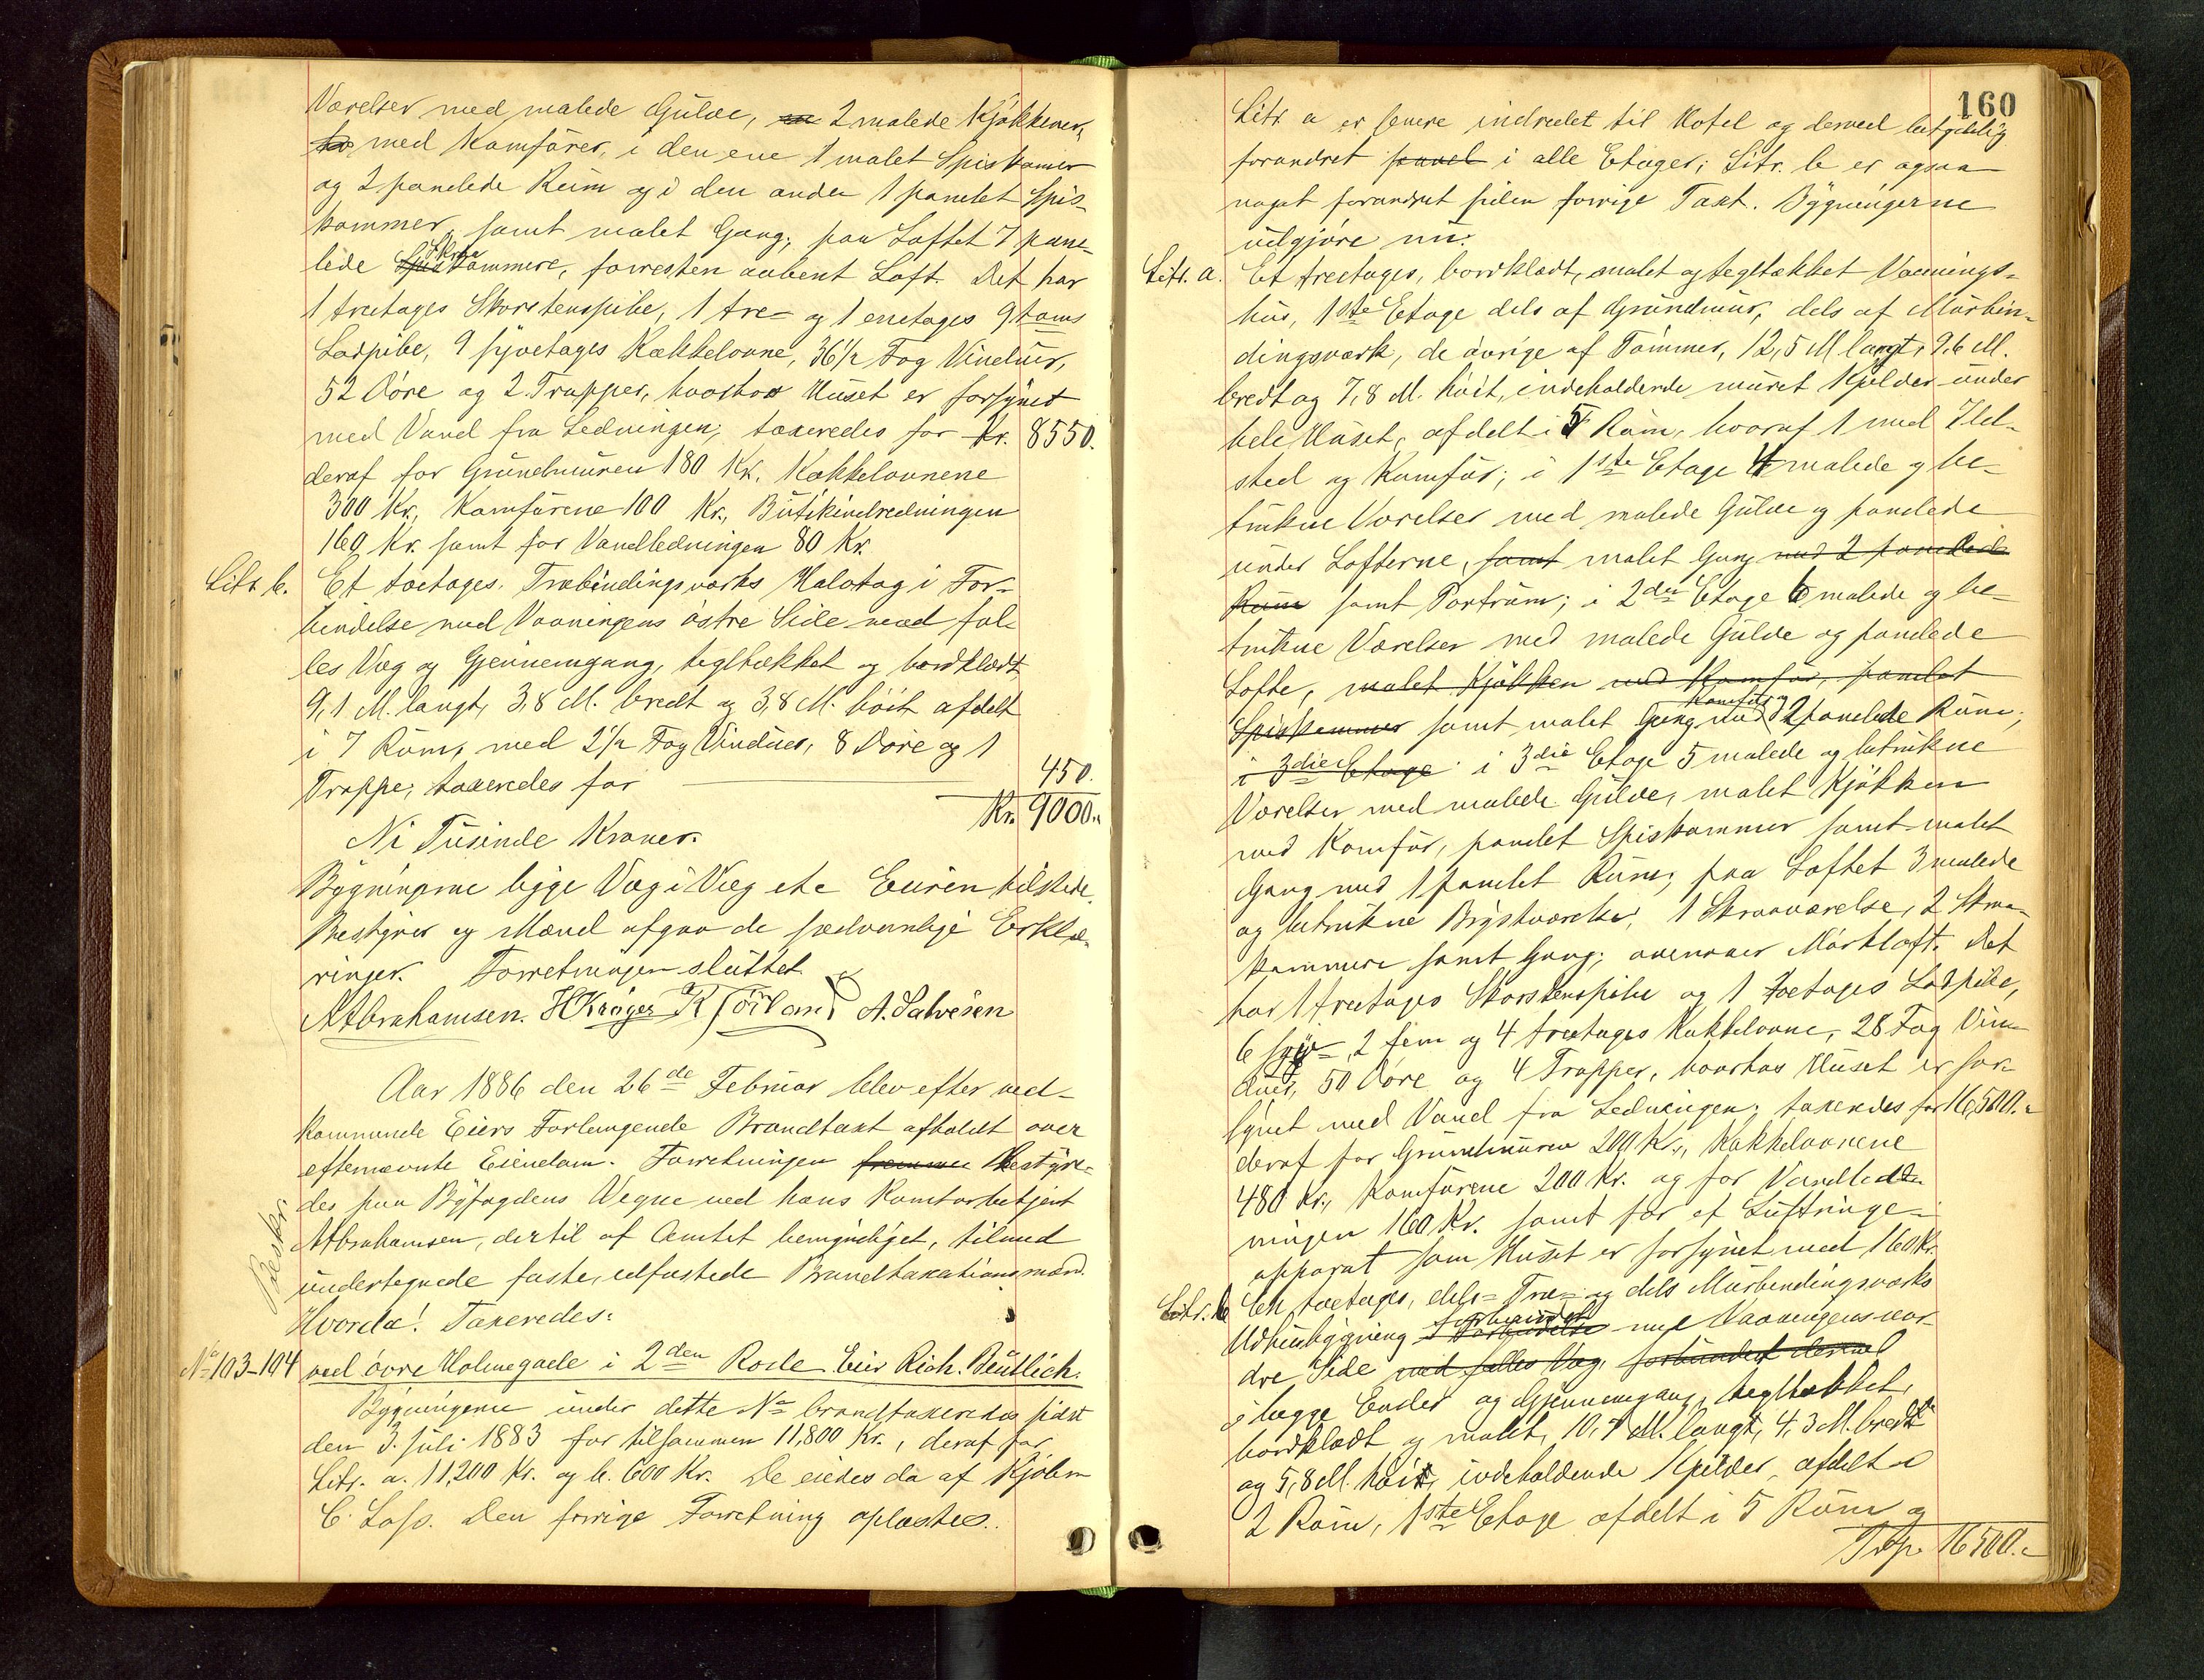 Værelser med malede Gulve, 2 malede Kjøkkener,
med Komfurer, i den ene 1 malet Spiskamer
og 2 panelede Rum og i den anden 1 panelet Spis-
kammer, samt malet Gang; paa Loftet 7 pane-
lede Skraakammere, forresten aabent Loft. Det har
1 treetages Skorstenspibe, 1 tre- og 1 enetages 9 toms
Lodpibe, 9 syvetages Kakkelovne, 36 1/2 Fag Vinduer,
52 Døre og 2 Trapper, hvorhos Huset er forsynet
med Vand fra Ledningen; taxeredes for Kr. 8550.
deraf for Grundmuren 180 Kr. Kakkelovnene
300 Kr., Komfurene 100 Kr., Butikindredningen
160 Kr. samt for Vandledningen 80 Kr.
Litr. b. Et toetages, Træbindingsværks Halvtag i For-
bindelse med Vaaningens østre Side med fæl-
les Væg og Gjennemgang, tegltækket og bordklædt
9,1 M. langt, 3,8 M. bredt og 3,8 M. høit afdelt
i 7 Rum, med 2 1/2 Fag Vinduer, 8 Døre og 1
Trappe; taxeredes for 450.
Kr. 9000.
Ni Tusinde Kroner.
Bygningerne ligge Væg i Væg etc Eieren tilstede.
Bestyrer og Mænd afgav de sædvanlige Erklæ-
ringer. Forretningen sluttet
A Abrahamsen. H Krøger K Sørland A. Salvesen
Aar 1886 den 26de Februar blev efter ved-
kommende Eiers Forlangende Brandtaxt afholdt over
eftenævnte Eiendom. Forretningen fremmes bestyre-
des paa Byfogdens Vegne ved hans Kontorbetjent
A Abrahamsen, dertil af Amtet bemyndiget, tilmed
undertegnede faste, edfæstede Brandtaxationsmænd.
Beskr.
Hvorda! Taxeredes:
No 103-104 ved øvre Holmegade i 2den Rode Eier Rich. Beutlich.
Bygningerne under dette No brandtaxeredes sidst
den 3. Juli 1883 for tilsammen 11,800 Kr., deraf for
Litr. a. 11,200 Kr. og b. 600 Kr. De eiedes da af Kjøbm
C. Lass. Den forrige Forretning oplæstes.
160
Litr a er senere indredet til Hotel og derved betydelig
forandret i alle Etager; Litr. b er ogsaa
noget forandret siden forrige Taxt. Bygningerne
udgjøre nu:
Litr. a. Et treetages, bordklædt, malet og tegltækket Vaanings-
hus, 1ste Etage dels af Grundmur, dels af Murbin-
dingsværk, de øvrige af Tømmer, 12,5 M langt, 9,6 M.
bredt og 7,8 M. høit, indeholdende muret Kjelder under
hele Huset, afdelt i 5 Rum, hvoraf 1 med Ild-
sted og Komfur; i 1ste Etage 4 malede og be-
trukne Værelser med malede Gulve og panelede
under Lofterne, samt malet Gang med 2 panelede
Rum samt Portrum; i 2den Etage 6 malede og be-
trukne Værelser med malede Gulve og panelede
Lofte, malet Kjøkken med Komfur, panelet
Spiskammer samt malet Gang med Komfur og 2 panelede Rum;
i 3die Etage i 3die Etage 5 malede og betrukne
Værelser med malede Gulve, malet Kjøkken
med Komfur, panelet Spiskammer samt malet
Gang med 1 panelet Rum; paa Loftet 3 malede
og betrukne Brystværelser, 1 Skraaværelse, 2 Skraa-
kammere samt Gang; ovenover Mørkloft. Det
har 1 treetages Skorstenspibe og 1 toetages Lodpibe,
6 syv-, 2 fem og 4 treetages Kakkelovne, 28 Fag Vin-
duer, 50 Døre og 4 Trapper, hvorhos Huset er for-
synet med Vand fra Ledningen; taxeredes for 16,500.
deraf for Grundmuren 200 Kr., Kakkelovnene
480 Kr., Komfurene 200 Kr. og for Vandled-
ningen 160 Kr. samt for et Luftringe-
apparat som Huset er forsynet med 160 Kr.
Litr. b En toetages, dels Træ- og dels Murbindingsværks
Udhusbygning forbundet med Vaaningens nor-
dre Side med fælles Væg, forbundet dermed
i begge Ender og Gjennemgang, tegltækket,
bordklædt og malet, 10,7 M. langt, 4,3 M. bredt
og 5,8 M. høit, indeholdende Kjelder, afdelt i
2 Rum, 1ste Etage afdelt i 5 Rum og
Trsp. 16500.